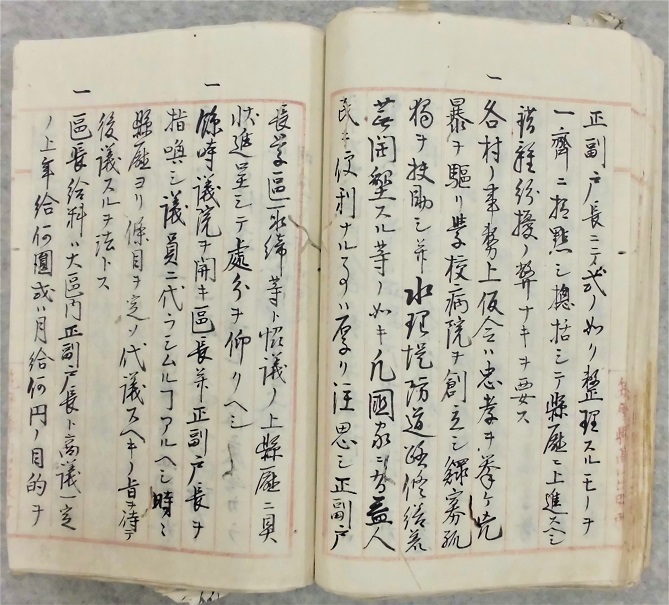 正副戸長ニテ式ノ如ク整理スルモノヲ
一齊ニ括點シ摠括シテ縣廳ニ上進スヘシ
錯雜紛擾ノ弊ナキヲ要ス
一
各村ノ事務上仮令ハ忠孝ヲ挙ケ兇
暴ヲ驅リ學校病院ヲ創立シ鰥寡孤
獨ヲ扶助シ并水理堤防道路修繕荒
蕪開墾スル等ノ如キ凡國家ニ益人
民ニ便利ナルヿハ厚ク注思シ正副戸
長学區取締等ト協議ノ上縣廳ニ具
状進呈シテ處分ヲ仰クヘシ
一
臨時議院ヲ開キ區長并正副戸長ヲ
指喚シ議員ニ代ラシムルヿアルヘシ時ニ
縣廳ヨリ條目ヲ定メ代議スヘキノ旨ヲ待テ
後議スルヲ法トス
一
區長給料ハ大區内正副戸長ト商議一定
ノ上年給何圓或ハ月給何円ノ目的ヲ